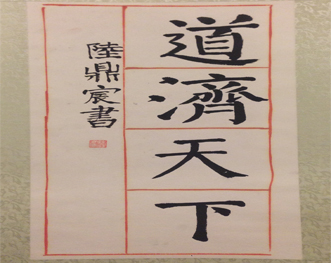 道濟天下
陸鼎宸書